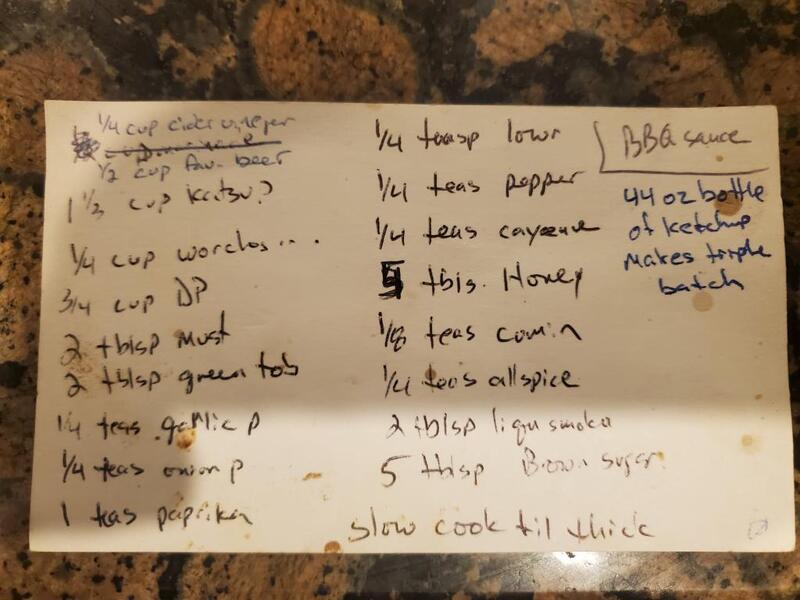 1/4 cup cider vineger
1/2 cup fav. beer
1 1/3 cup
1/4 cup worches...
3/4 cup DP
2 tblsp must
2 tblsp green tob
1/4 teas garlic p
1/4 teas onion p
1 teas paprika
1/4 teasp lowr
1/4 teas pepper
1/4 teas cayenne
tbls. Honey
1/8 teas comin
1/4 teas allspice
2 tblsp liqu smoke
5 tblsp Brown suger
slow cook til thick
BBQ sauce
44 oz bottle
of ketchup
Makes triple
batch